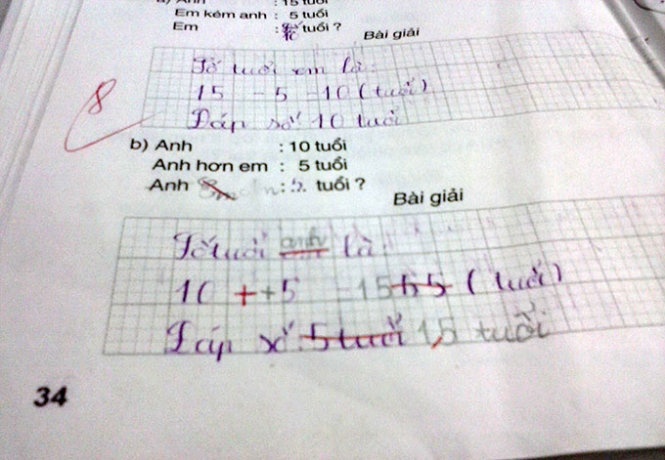 a) Anh : 15 tuổi
Em kém anh : 5 tuổi
Em : tuổi ?
Bài giải
Số tuổi em là:
15 - 5 = 10 (tuổi)
Đáp số 10 tuổi
8
b) Anh : 10 tuổi
Anh hơn em : 5 tuổi
Anh : ? tuổi ?
Bài giải
Số tuổi anh là
10 + + 5 = 15 (tuổi)
Đáp số: 5 tuổi 15 tuổi
34